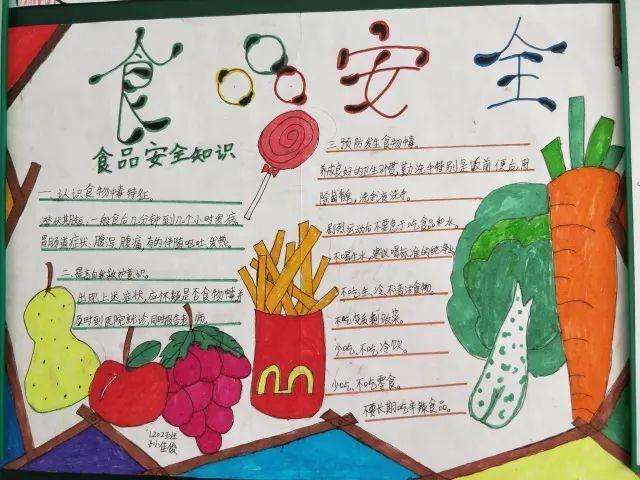 食品安全
食品安全知识
一.认识食物中毒特征。
潜伏期短,一般食后几分钟到几个小时发病
胃肠道症状,腹泻、腹痛,有的伴随呕吐、发热。
二.提高自我救护意识。
出现上述症状,应怀疑是否食物中毒,并
及时到医院就诊,同时报告老师
三.预防发生食物中毒
养成良好的卫生习惯,勤洗手特别是饭前便后,用
除菌香皂、洗手液洗手。
剧烈运动后不要急于吃食品和水。
不喝生水,建议喝标准的纯净水
不吃生、冷、不清洁食物。
不吃变质剩饭菜。
少吃、不吃、冷饮。
少吃、不吃零食。
不要长期吃辛辣食品。
1202班
孙佳俊